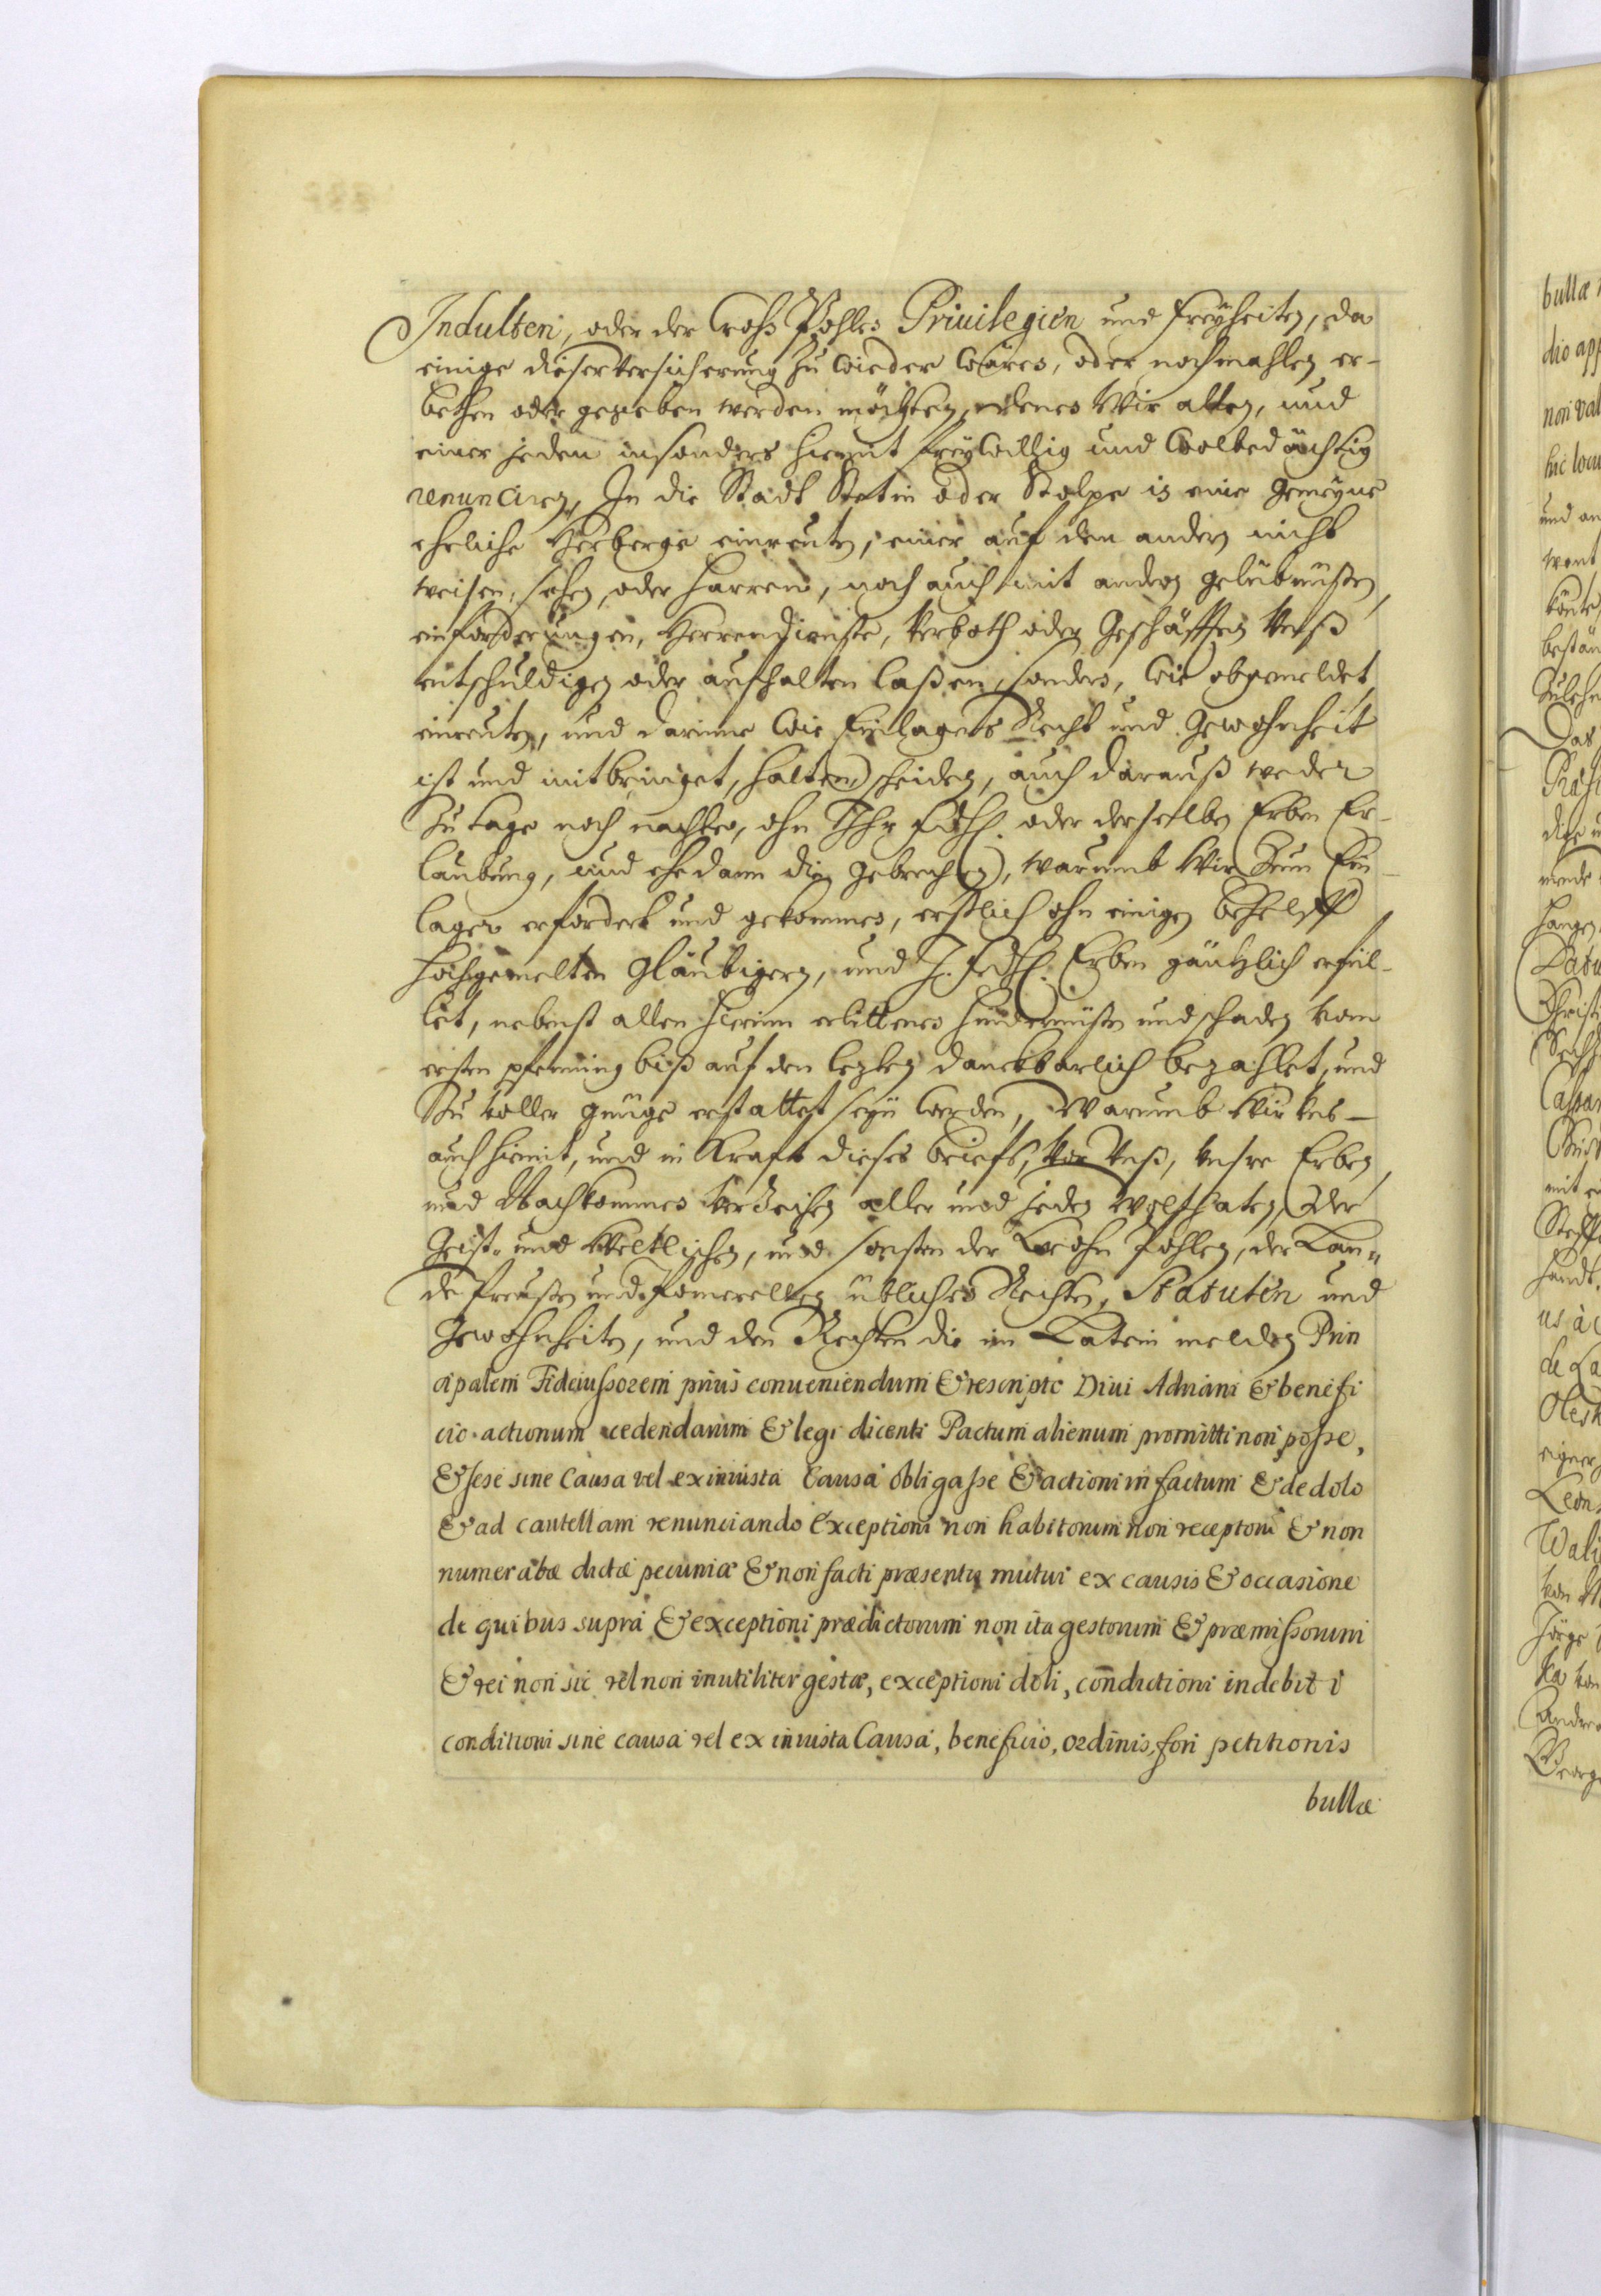 Indulten, oder der Crohn Pohlen Privilegien und freyheiten, da
einige dieser versicherung zu wieder wären, oder nochmahlen er-
bethen oder gegeben werden möchten, denen Wir allen, und
einer jeden insonders hiemit freywillig und wolbedächtig
renunciren, In die Stadt Stetin oder Stolpe in eine gemeyne
ehrliche Herberge einreuten, einer auf den andern nicht
weisen, sehen, oder harren, noch auch mit andern gelübnüßen,
einforderungen, Herrendienste, Verboth oder Geschäfften Vnß
entschuldigen oder aufhalten laßen, sondern, wie obgemeldet
einreuten, und darinne wie Einlagers Recht und Gewohnheit
ist und mitbringet, halten, scheiden, auch darauß weder
zu tage noch nachten, ohn Ihr fürstl. oder derselben Erben Er-
laubung, und ehe dann die gebrechen, warumb Wir Zum Ein-
lager erfordert und gekommen, erstlich ohn einigen behelff
hochgemelten Gläubigern, und J. fürstl. Erben gäntzlich erfül-
let, nebenst allen hierinn erlittenen hindernüßen und schaden vom
ersten pfenning biß auf den lezten danckbarlich bezahlet, und
Zu voller gnüge erstattet seyn werden, Warumb Wir Vns-
auch hiemit, und in Kraft dieses briefs, vor Vnß, Vnsre Erben,
und Nachkommen Verzeihen aller und jeden wolthaten, der
Geist- und Weltlichen, und sonsten der Crohn Pohlen, der Lan-
de Preußen und Pomerellen üblichen Rechten, Statuten und
Gewohnheiten, und den Rechten die im Latein melden Prin
cipalem Fideiussorem prius conueniendum & rescripto Diui Adriani & benefi
cio actionum cedendarum & legi dicenti Pactum alienum promitti non posse,
& sese sine Causa vel ex iniusta Causa obligasse & actioni in factum & de dolo
& ad cautellam renunciando Exceptioni non habitorum non receptorum & non
numeratæ dictæ pecuniæ & non facti præsentis mutui ex causis & occasione
de quibus supra & exceptioni prædictorum non ita gestorum & præmissorum
& rei non sic vel non inutiliter gestæ, exceptioni doli, condictioni indebiti
conditioni sine causa vel ex iniusta Causa, beneficio, ordinis, fori petitionis
bullæ